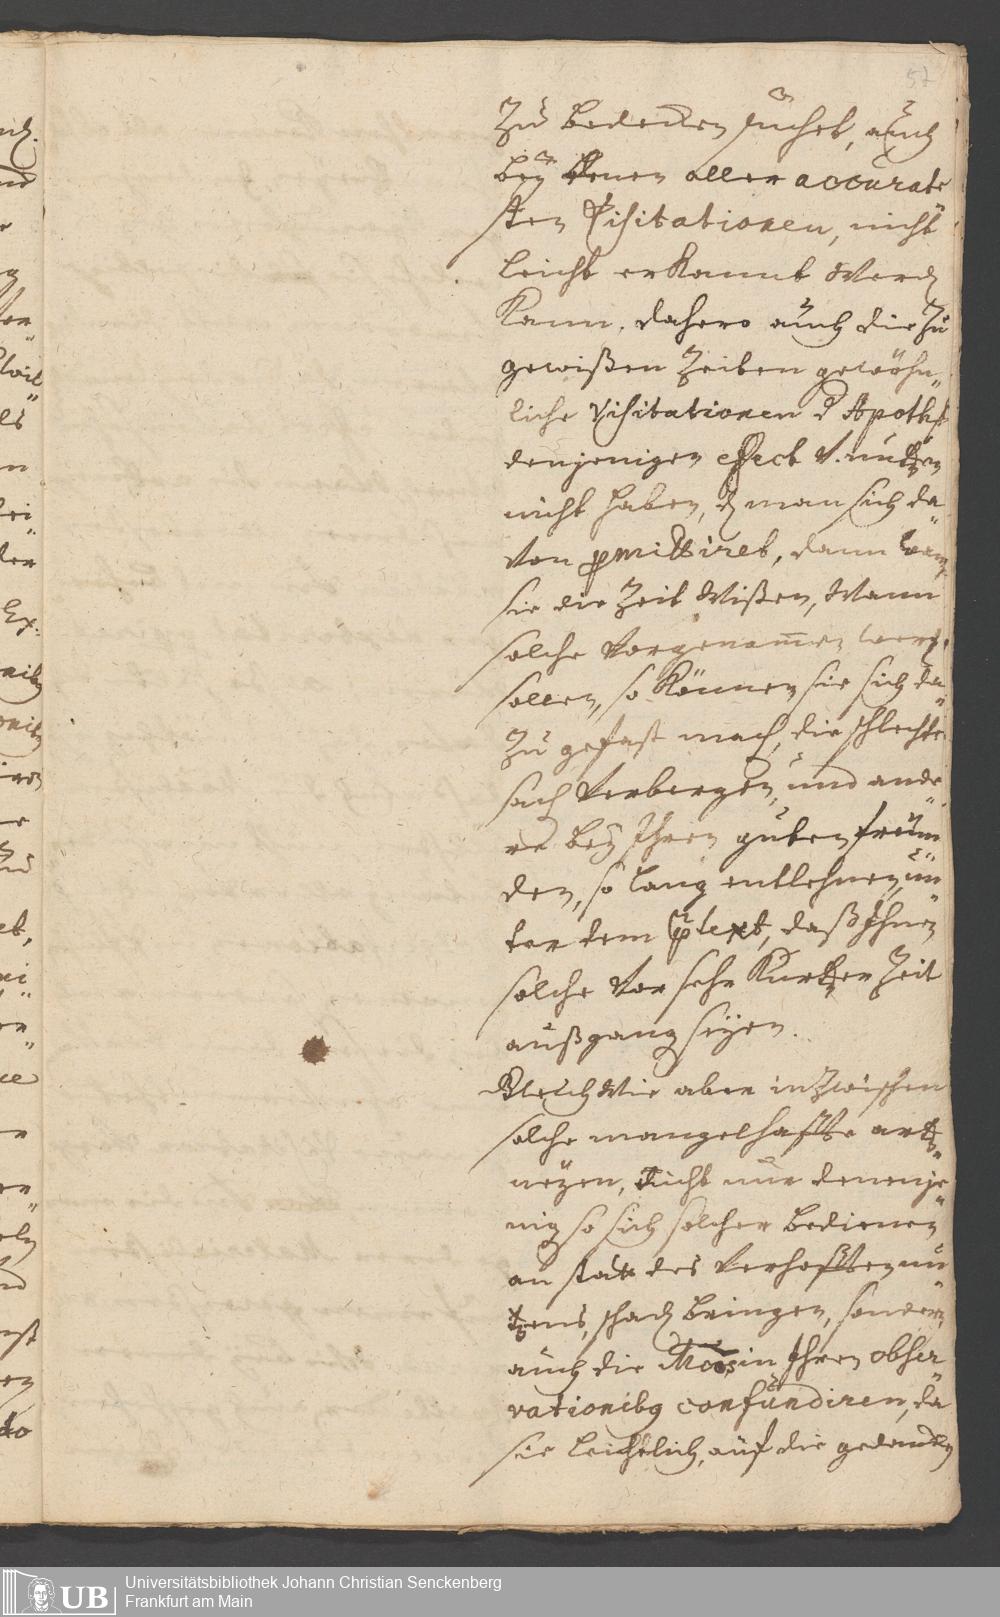 57
Zu bedencken suchet, auch
bey denen aller accurate
sten Visitationen, nicht
leicht erkannt werd
kann, dahero auch die zu
gewißen Zeiten gewöhn„
liche Visitationen d Apothk
denjenigen effect v. nutzen
nicht haben, d man sich da„
von pmittiret, dann wan
sie die Zeit wißen, wann
solche vorgenomen werd.
sollen, so können sie sich da„
zu gefast mach, die schlechte
sach verbergen, und ande„
re bey Ihren guten freun„
den, so lang entlehnen, un„
ter dem ptext, daß Ihnen
solche vor sehr kurtzer Zeit
außgang seyen.
Gleichwie aber inzwischen
solche mangelhaffte artz„
neyen, nicht nur denenje„
nig so sich solcher bedienen
an statt des verhofften nu„
tzens, schad bringen, sondern,
auch die in Ihren obser„
vationibq confundiren, da
sie leichtlich, auf die gedancken
UB
Universitätsbibliothek Johann Christian Senckenberg
Frankfurt am Main